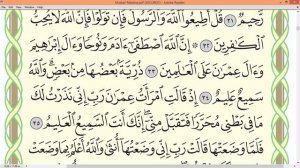 Mushaf Madinah.pdf (SECURED) - Adobe Reader
رَّحِيمٌ ٣١ قُلْ أَطِيعُوا۟ ٱللَّهَ وَٱلرَّسُولَ فَإِن تَوَلَّوْا۟ فَإِنَّ ٱللَّهَ لَا يُحِبُّ
ٱلْكَٰفِرِينَ ٣٢ إِنَّ ٱللَّهَ ٱصْطَفَىٰٓ ءَادَمَ وَنُوحًا وَءَالَ إِبْرَٰهِيمَ
وَءَالَ عِمْرَٰنَ عَلَى ٱلْعَٰلَمِينَ ٣٣ ذُرِّيَّةًۢ بَعْضُهَا مِنۢ بَعْضٍ وَٱللَّهُ
سَمِيعٌ عَلِيمٌ ٣٤ إِذْ قَالَتِ ٱمْرَأَتُ عِمْرَٰنَ رَبِّ إِنِّى نَذَرْتُ لَكَ
مَا فِى بَطْنِى مُحَرَّرًا فَتَقَبَّلْ مِنِّىٓ إِنَّكَ أَنتَ ٱلسَّمِيعُ ٱلْعَلِيمُ ٣٥
فَلَمَّا وَضَعَتْهَا قَالَتْ رَبِّ إِنِّى وَضَعْتُهَآ أُنثَىٰ وَٱللَّهُ أَعْلَمُ بِمَا وَضَعَتْ